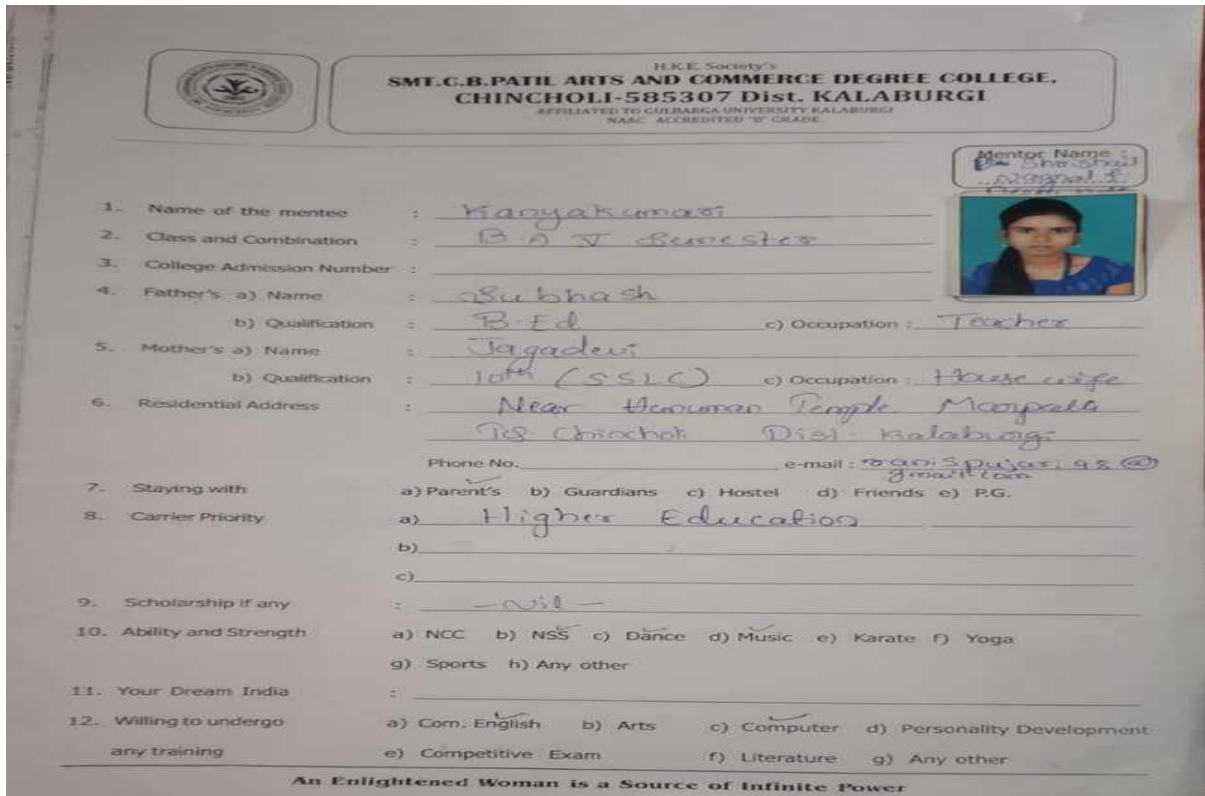 H.K.E. Society's
SMT.C.B.PATIL ARTS AND COMMERCE DEGREE COLLEGE,
CHINCHOLI-585307 Dist. KALABURGI
AFFILIATED TO GULBARGA UNIVERSITY KALABURGI
NAAC ACCREDITED "B" GRADE
Mentor Name :
Shrishail
1. Name of the mentee : Kanyakumari
2. Class and Combination : B.A V Semester
3. College Admission Number :
4. Father's a) Name : Subhash
b) Qualification : B.Ed c) Occupation : Teacher
5. Mother's a) Name : Jagadevi
b) Qualification : 10th (SSLC) c) Occupation : House wife
6. Residential Address : Near Hanuman Temple
Tq. Chincholi Dist- Kalaburgi
Phone No. e-mail : ranispujari98@
gmail.com
7. Staying with a) Parent's b) Guardians c) Hostel d) Friends e) P.G.
8. Carrier Priority a) Higher Education
b)
c)
9. Scholarship if any : - Nil -
10. Ability and Strength a) NCC b) NSS c) Dance d) Music e) Karate f) Yoga
g) Sports h) Any other
11. Your Dream India :
12. Willing to undergo a) Com. English b) Arts c) Computer d) Personality Development
any training e) Competitive Exam f) Literature g) Any other
An Enlightened Woman is a Source of Infinite Power